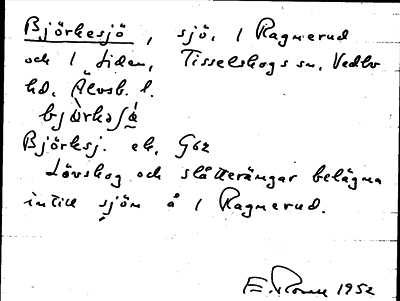 Björkesjö, sjö, i Ragnerud
och i Liden, Tisselskogs sn, Vedbo
hd, Älvsb. l.
Björkesj. ek. G62
Lövskog och slåtterängar belägna
intill sjön å i Ragnerud.
1952